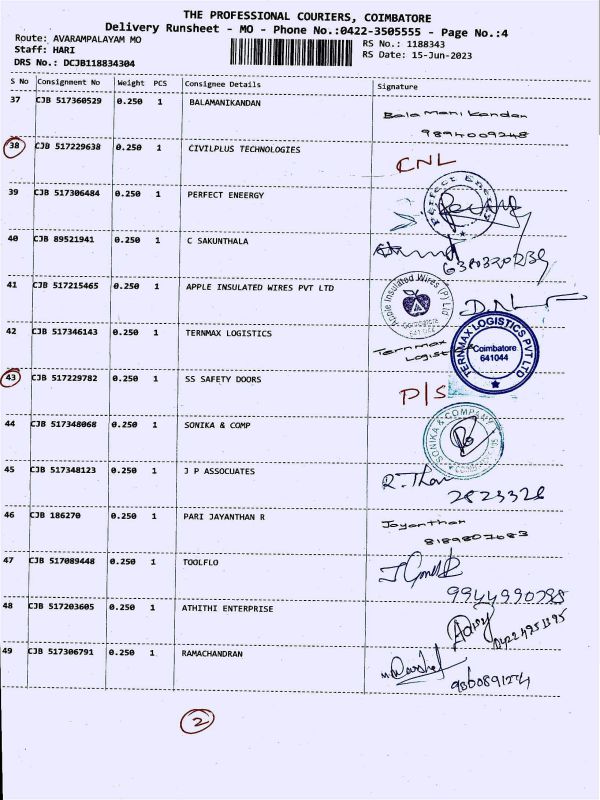 THE PROFESSIONAL COURIERS, COIMBATORE
Delivery Runsheet - MO - Phone No.:0422-3505555 - Page No.:4
Route: AVARAMPALAYAM MO
RS No.: 1188343
Staff: HARI
RS Date: 15-Jun-2023
DRS No.: DCJB118834304
S No Consignment No Weight PCS Consignee Details Signature
37 CJB 517360529 0.250 1 BALAMANIKANDAN BalaManikandan
9894009248
38 CJB 517229638 0.250 1 CIVILPLUS TECHNOLOGIES CNL
39 CJB 517306484 0.250 1 PERFECT ENEERGY Perfect Energy
40 CJB 89521941 0.250 1 C SAKUNTHALA
41 CJB 517215465 0.250 1 APPLE INSULATED WIRES PVT LTD Apple Insulated Wires (P) Ltd
42 CJB 517346143 0.250 1 TERNMAX LOGISTICS Ternmax Logistics
TERNMAX LOGISTICS PVT LTD
Coimbatore
641044
43 CJB 517229782 0.250 1 SS SAFETY DOORS D/S
44 CJB 517348068 0.250 1 SONIKA & COMP SONIKA & COMPANY
45 CJB 517348123 0.250 1 J P ASSOCUATES
2823328
46 CJB 186270 0.250 1 PARI JAYANTHAN R Jayanthan
8189807683
47 CJB 517089448 0.250 1 TOOLFLO
9944990788
48 CJB 517203605 0.250 1 ATHITHI ENTERPRISE
49 CJB 517306791 0.250 1 RAMACHANDRAN
2